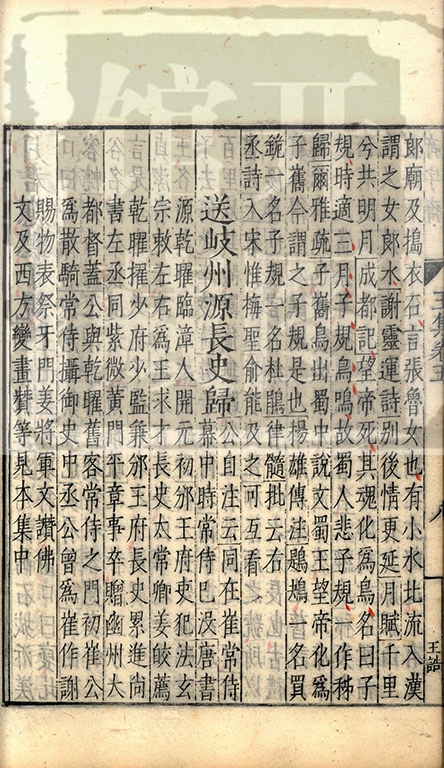 郎廟及搗衣石言張魯女也有小水北流入漢
謂之女郎水謝靈運詩別後情更延月賦千里
兮共明月成都記望帝死其魂化為鳥名曰子
規時適三月子規鳥鳴故蜀人悲子規一作秭
歸爾雅疏子嶲鳥出蜀中說文蜀王望帝化為
子嶲今謂之子規是也楊雄傳注鶗鴂一名買
䤥一名子規一名杜鵑律髓批云右
丞詩入宋惟梅聖俞能及之可互看
送岐州源長史歸
公自注云同在崔常侍
幕中時常侍已没唐書
源乾曜臨漳人開元初邠王府吏犯法玄
宗敕左右為王求才長史太常卿姜皎薦
乾曜擢少府少監兼邠王府長史累進尚
書左丞同紫微黃門平章事卒贈幽州大
都督蓋公與乾曜舊客常侍之門初崔公
為散騎常侍攝御史中丞公曾為崔作謝
賜物表祭牙門姜將軍文讚佛
文及西方變畫贊等見本集中
王誥